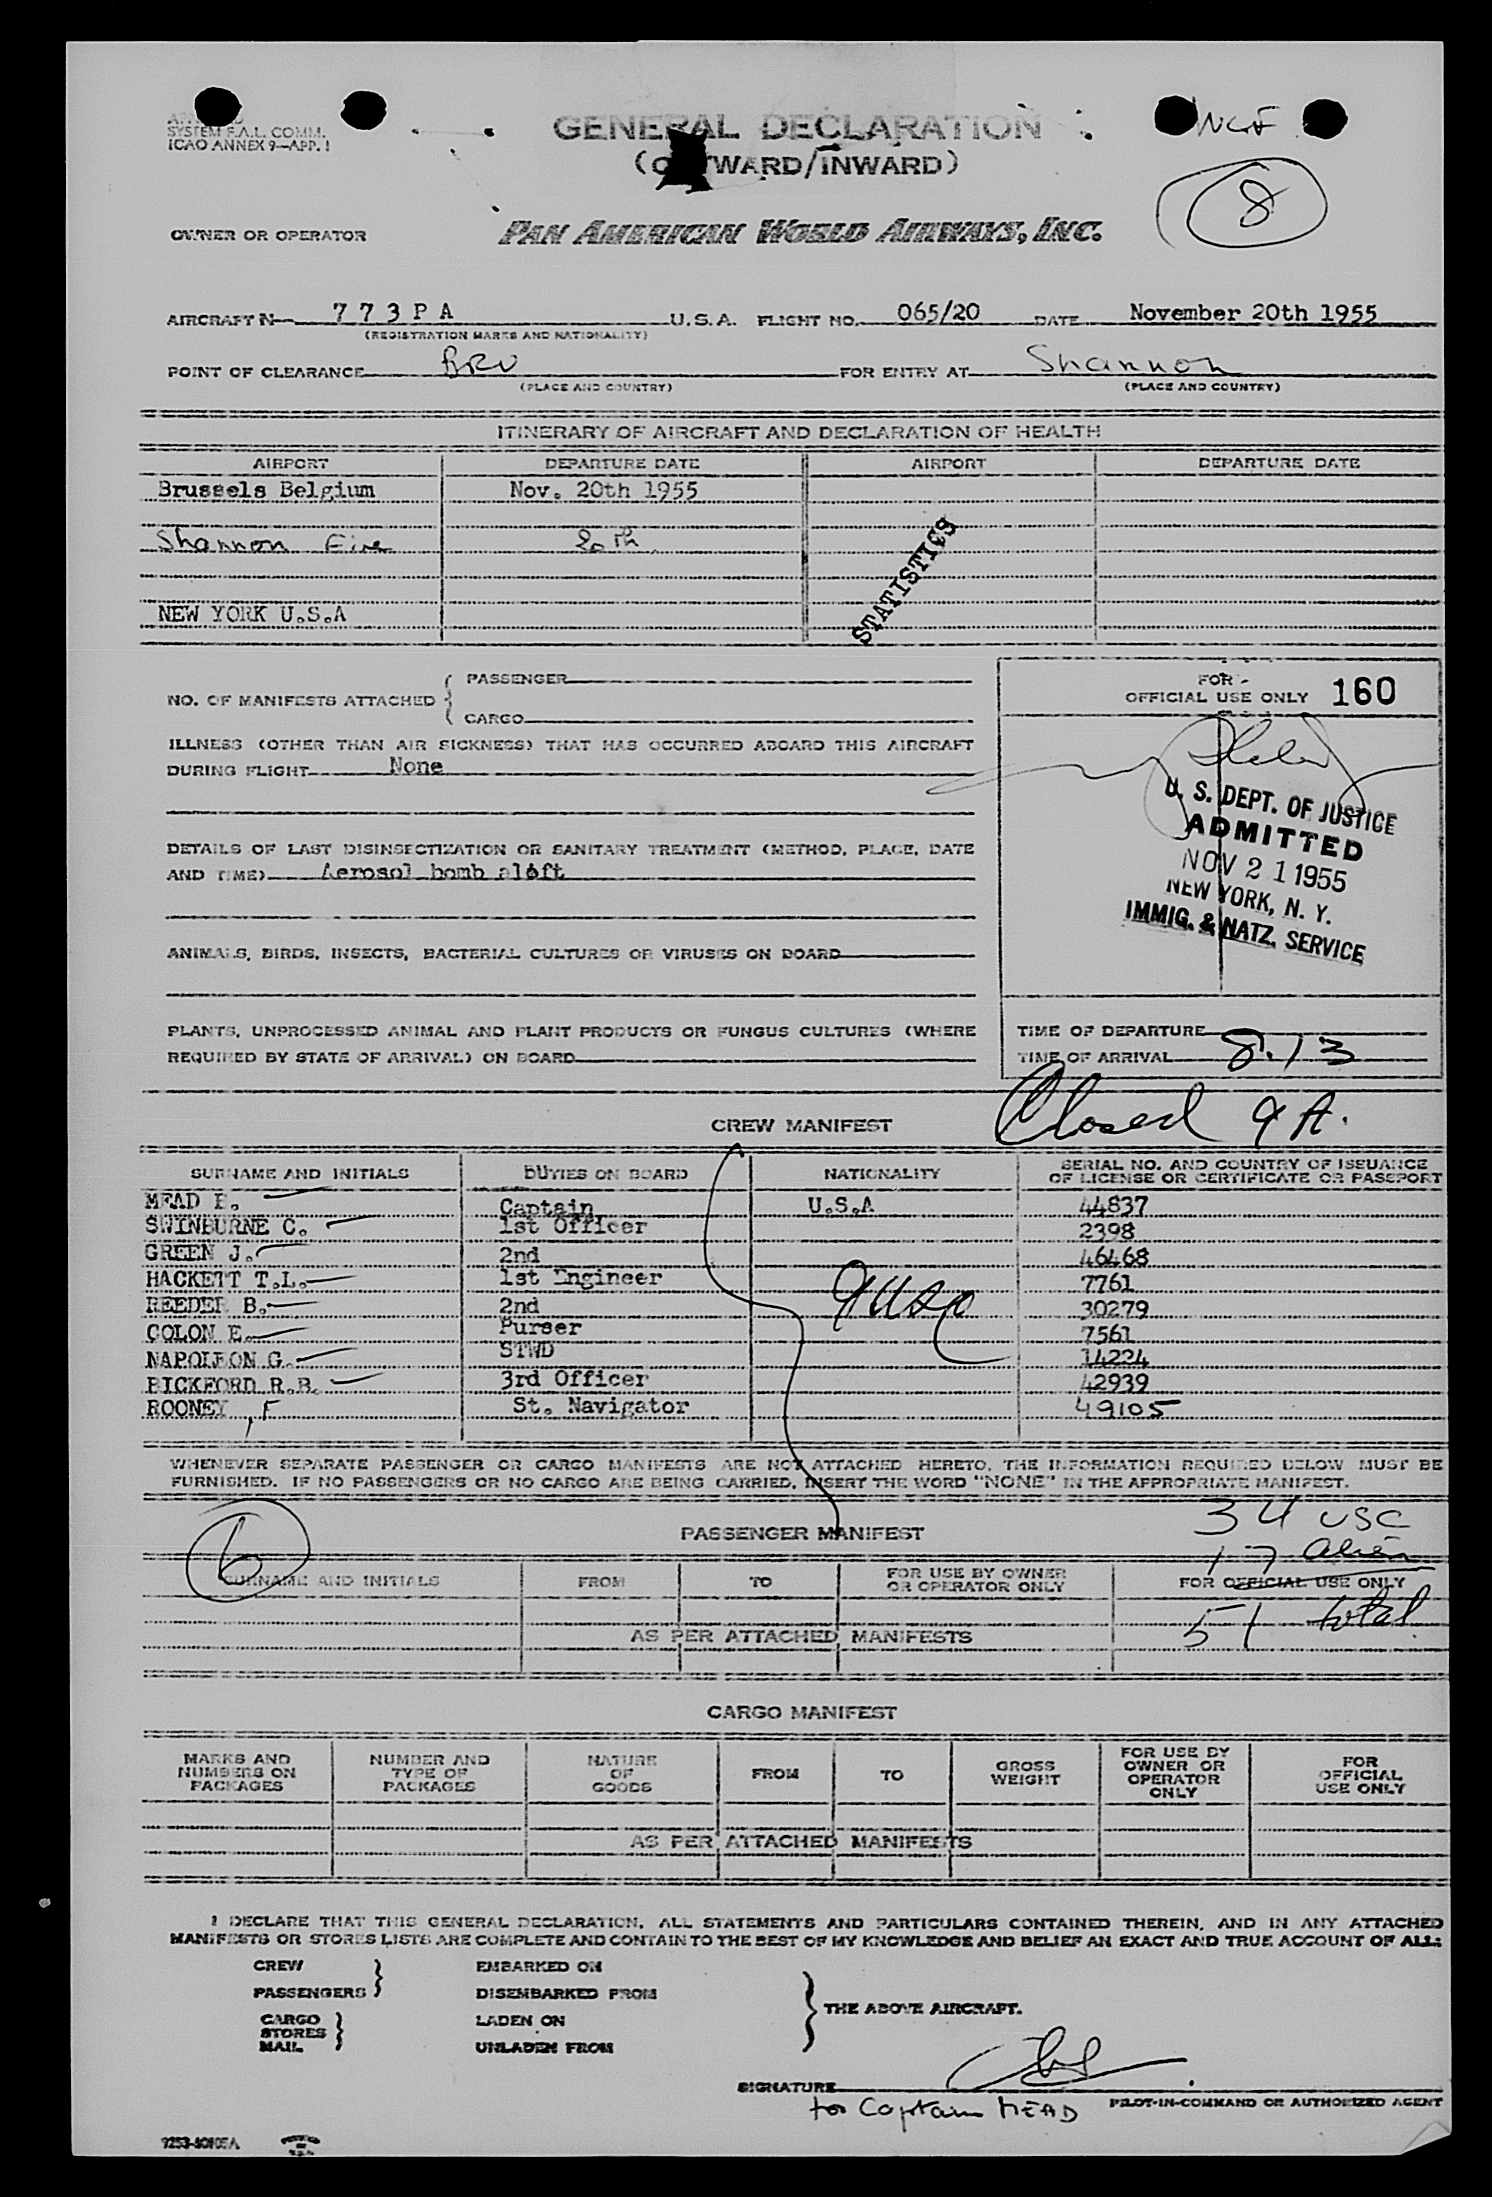 SYSTEM F.A.L. COMM.
ICAO ANNEX 9—APP. 1
GENERAL DECLARATION
(OUTWARD/INWARD)
8
OWNER OR OPERATOR
PAN AMERICAN WORLD AIRWAYS, INC.
AIRCRAFT N 7 7 3 P A U.S.A. FLIGHT NO. 065/20 DATE November 20th 1955
(REGISTRATION MARKS AND NATIONALITY)
POINT OF CLEARANCE BRU FOR ENTRY AT Shannon
(PLACE AND COUNTRY) (PLACE AND COUNTRY)
ITINERARY OF AIRCRAFT AND DECLARATION OF HEALTH
AIRPORT DEPARTURE DATE AIRPORT DEPARTURE DATE
Brussels Belgium Nov. 20th 1955
Shannon Eire 20th
STATISTICS
NEW YORK U.S.A
NO. OF MANIFESTS ATTACHED { PASSENGER
CARGO
FOR
OFFICIAL USE ONLY 160
ILLNESS (OTHER THAN AIR SICKNESS) THAT HAS OCCURRED ABOARD THIS AIRCRAFT
DURING FLIGHT None
U. S. DEPT. OF JUSTICE
ADMITTED
NOV 21 1955
NEW YORK, N. Y.
IMMIG. & NATZ. SERVICE
DETAILS OF LAST DISINSECTIZATION OR SANITARY TREATMENT (METHOD, PLACE, DATE
AND TIME) Aerosol bomb aloft
ANIMALS, BIRDS, INSECTS, BACTERIAL CULTURES OR VIRUSES ON BOARD
PLANTS, UNPROCESSED ANIMAL AND PLANT PRODUCTS OR FUNGUS CULTURES (WHERE
REQUIRED BY STATE OF ARRIVAL) ON BOARD
TIME OF DEPARTURE
TIME OF ARRIVAL 8.13
Closed 9 A.
CREW MANIFEST
SURNAME AND INITIALS DUTIES ON BOARD NATIONALITY SERIAL NO. AND COUNTRY OF ISSUANCE
OF LICENSE OR CERTIFICATE OR PASSPORT
MEAD E. Captain U.S.A 44837
SWINBURNE C. 1st Officer 2398
GREEN J. 2nd 46468
HACKETT T.L. 1st Engineer 7761
REEDER B. 2nd 30279
COLON E. Purser 7561
NAPOLEON G. STWD 14224
BICKFORD R.B. 3rd Officer 42939
ROONEY, F St. Navigator 49105
9 USC
WHENEVER SEPARATE PASSENGER OR CARGO MANIFESTS ARE NOT ATTACHED HERETO, THE INFORMATION REQUIRED BELOW MUST BE
FURNISHED. IF NO PASSENGERS OR NO CARGO ARE BEING CARRIED, INSERT THE WORD "NONE" IN THE APPROPRIATE MANIFEST.
6
PASSENGER MANIFEST
34 USC
17 alien
51 total
SURNAME AND INITIALS FROM TO FOR USE BY OWNER
OR OPERATOR ONLY FOR OFFICIAL USE ONLY
AS PER ATTACHED MANIFESTS
CARGO MANIFEST
MARKS AND
NUMBERS ON
PACKAGES
NUMBER AND
TYPE OF
PACKAGES
NATURE
OF
GOODS
FROM
TO
GROSS
WEIGHT
FOR USE BY
OWNER OR
OPERATOR
ONLY
FOR
OFFICIAL
USE ONLY
AS PER ATTACHED MANIFESTS
I DECLARE THAT THIS GENERAL DECLARATION, ALL STATEMENTS AND PARTICULARS CONTAINED THEREIN, AND IN ANY ATTACHED
MANIFESTS OR STORES LISTS ARE COMPLETE AND CONTAIN TO THE BEST OF MY KNOWLEDGE AND BELIEF AN EXACT AND TRUE ACCOUNT OF ALL:
CREW EMBARKED ON
PASSENGERS DISEMBARKED FROM
THE ABOVE AIRCRAFT.
CARGO LADEN ON
STORES
MAIL UNLADEN FROM
SIGNATURE
for Captain MEAD PILOT-IN-COMMAND OR AUTHORIZED AGENT